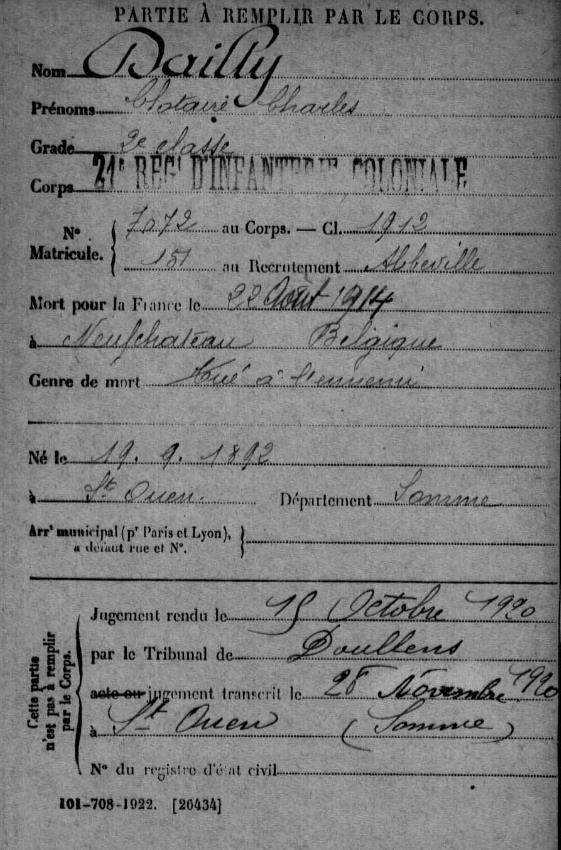 PARTIE À REMPLIR PAR LE CORPS.
Nom Dailly
Prénoms Clotaire Charles
Grade 2e classe
Corps 21e REGt D'INFANTERIE COLONIALE
No Matricule. { 7072 au Corps. — Cl. 1912
151 au Recrutement Abbeville
Mort pour la France le 22 Août 1914
à Neufchateau Belgique
Genre de mort Tué à l'ennemi
Né le 19. 9. 1892
à St Ouen. Département Somme
Arrt municipal (pr Paris et Lyon),
à défaut rue et No.
Cette partie n'est pas à remplir par le Corps.
Jugement rendu le 15 Octobre 1920
par le Tribunal de Doullens
acte ou jugement transcrit le 28 Novembre 1920
à St Ouen (Somme)
No du registre d'état civil
101-708-1922. [26434]